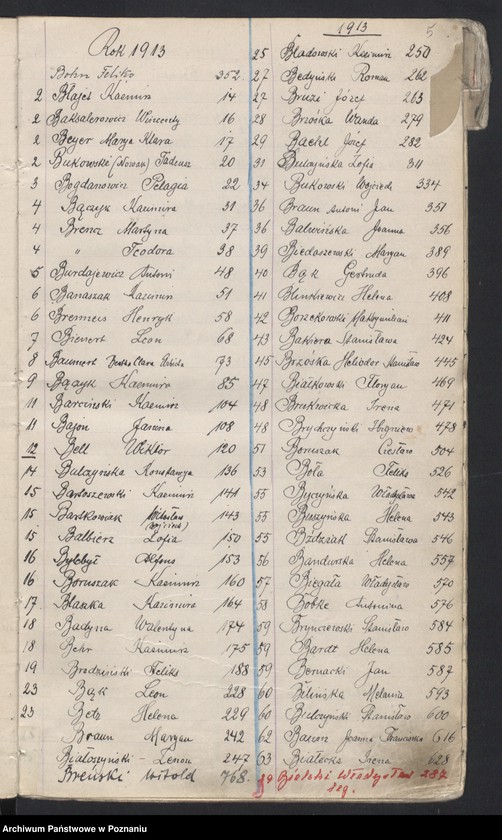 Rok 1913
Bohn Feliks 352
2 Błajet Kazimierz 14
2 Baksalerowicz Wincenty 16
2 Beyer Marya Klara 17
2 Bukowski (Nowak) Tadeusz 20
3 Bogdanowicz Pelagia 22
4 Bączyk Kazimira 31
4 Brencz Martyna 37
4 " Teodora 38
5 Burdajewicz Antoni 48
6 Banaszak Kazimierz 51
6 Bremeus Henryk 58
7 Bienert Leon 68
8 Baumert Clara 73
9 Bączyk Kazimira 85
11 Barciński Kazimierz 104
11 Bajon Janina 108
12 Bell Wiktor 120
14 Bulczyńska Konstancya 136
15 Bartoszewski Kazimierz 141
15 Bartkowiak Wojciech 143
15 Balbierz Zofia 150
16 Alfons 153
16 Boruszak Kazimierz 160
17 Blaszka Kazimiera 164
18 Badyna Walentyna 174
18 Behr Kazimierz 175
19 Brodziński Feliks 188
23 Bąk Leon 228
23 Betz Helena 229
Braun Maryan 242
Białoszyński Zenon 247
Breński Witold 768.
1913
5
25 Bladowski Kazimierz 250
27 Bedyński Roman 262
27 Józef 263
28 Brzóska Wanda 279
29 Bachl Józef 282
31 Bulczyńska Zofia 311
34 Bukowski Wojciech 334
36 Braun Antoni Jan 351
36 Balwińska Joanna 356
39 Biedaszewski Maryan 389
40 Bąk Gertruda 396
41 Blinkiewicz Helena 408
42 Borzekowski Maksymilian 411
43 Bakiera Stanisława 424
45 Brzóska Heliodor Stanisław 445
47 Białkowski Floryan 469
48 Irena 471
48 Brychczyński Zbigniew 478
51 Boruszak Czesław 504
53 Beła Feliks 526
55 Byczyńska Władysława 542
55 Bieszyńska Helena 543
55 Badziak Stanisława 546
56 Bandurska Helena 557
57 Biegała Władysław 570
58 Bobke Antonina 576
59 Brynczewski Stanisław 584
59 Bardt Helena 585
59 Bernacki Jan 587
60 Bilińska Melania 593
60 Bielczyński Stanisław 600
62 Balcerz Joanna Franciszka 616
63 Białecka Irena 628
29 Bielski Władysław 287
Archiwum Państwowe w Poznaniu